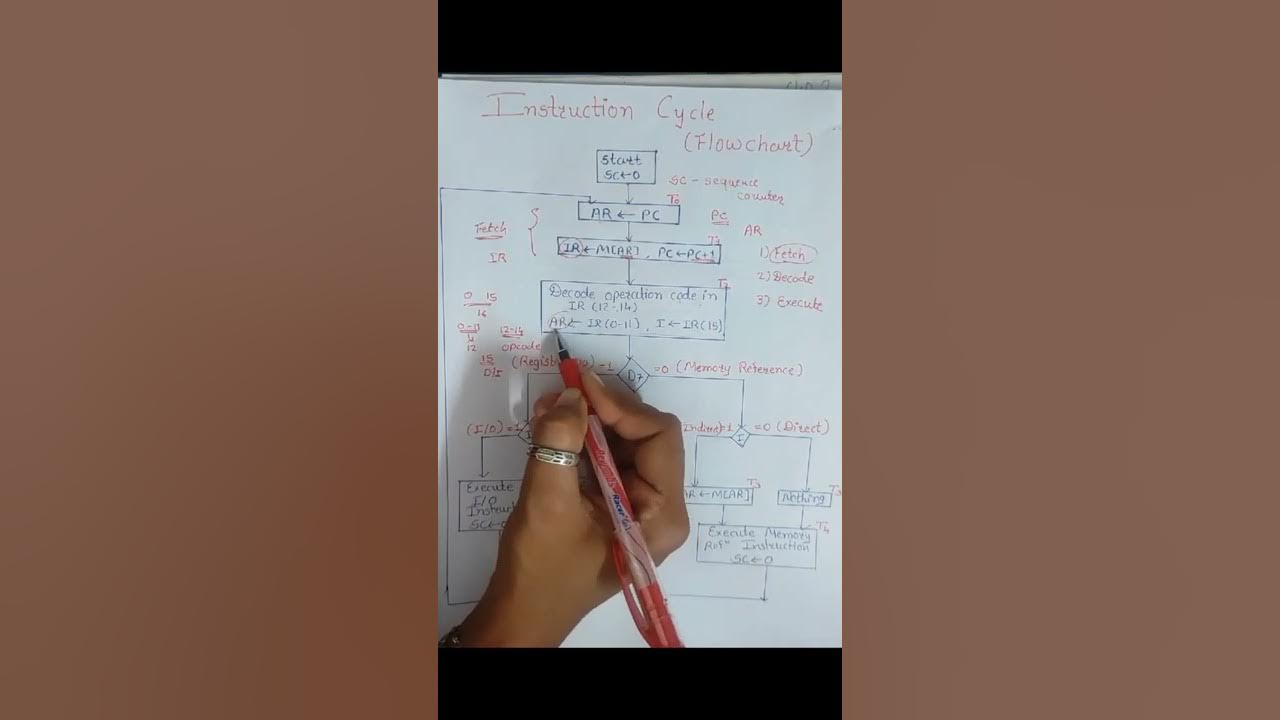 Instruction Cycle
(Flowchart)
Start
SC←0
SC - sequence
counter
T0
AR ← PC
PC
AR
Fetch
IR
T1
IR ← M[AR], PC ← PC+1
1) Fetch
2) Decode
3) Execute
T2
Decode operation code in
IR (12-14)
AR ← IR(0-11), I ← IR(15)
0 15
16
0-11
12
12-14
opcode
15
D/I
=1
D7
=0 (Memory Reference)
(I/O) =1
=1
I
=0 (Direct)
Execute
I/O
SC←0
T3
AR ← M[AR]
T3
Nothing
T4
Execute Memory
Refn Instruction
SC←0
Reynolds
Racer gel